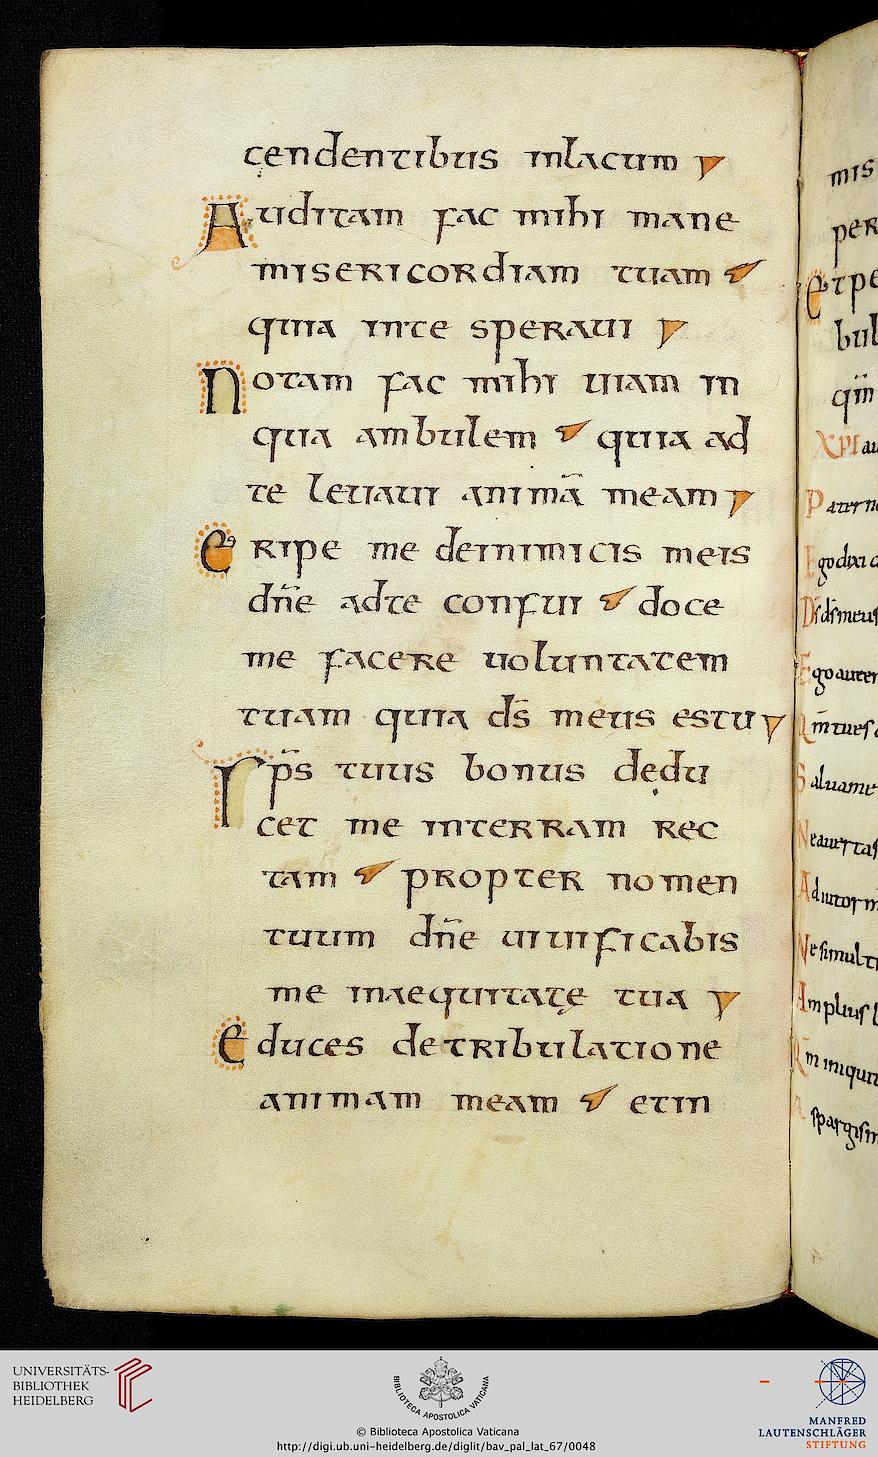 cendentibus inlacum
Auditam fac mihi mane
misericordiam tuam
quia inte speraui
Notam fac mihi uiam in
qua ambulem quia ad
te leuaui animā meam
Eripe me deinimicis meis
dn̄e adte confui doce
me facere uoluntatem
tuam quia ds̄ meus estu
sps̄ tuus bonus dedu
cet me interram rec
tam propter nomen
tuum dn̄e uiuificabis
me inaequitate tua
Educes detribulatione
animam meam etin
mis
per
Etpe
bul
qm̄
XPI au
Patern
Ego dixi
Ds̄ ds̄ meus
Ego autem
Qm̄ tu es
Saluame
Neauertas
Adiutor m
Ne simul
Amplius
Qm̄ iniqui
UNIVERSITÄTS-
BIBLIOTHEK
HEIDELBERG
BIBLIOTECA APOSTOLICA VATICANA
© Biblioteca Apostolica Vaticana
http://digi.ub.uni-heidelberg.de/diglit/bav_pal_lat_67/0048
MANFRED
LAUTENSCHLÄGER
STIFTUNG